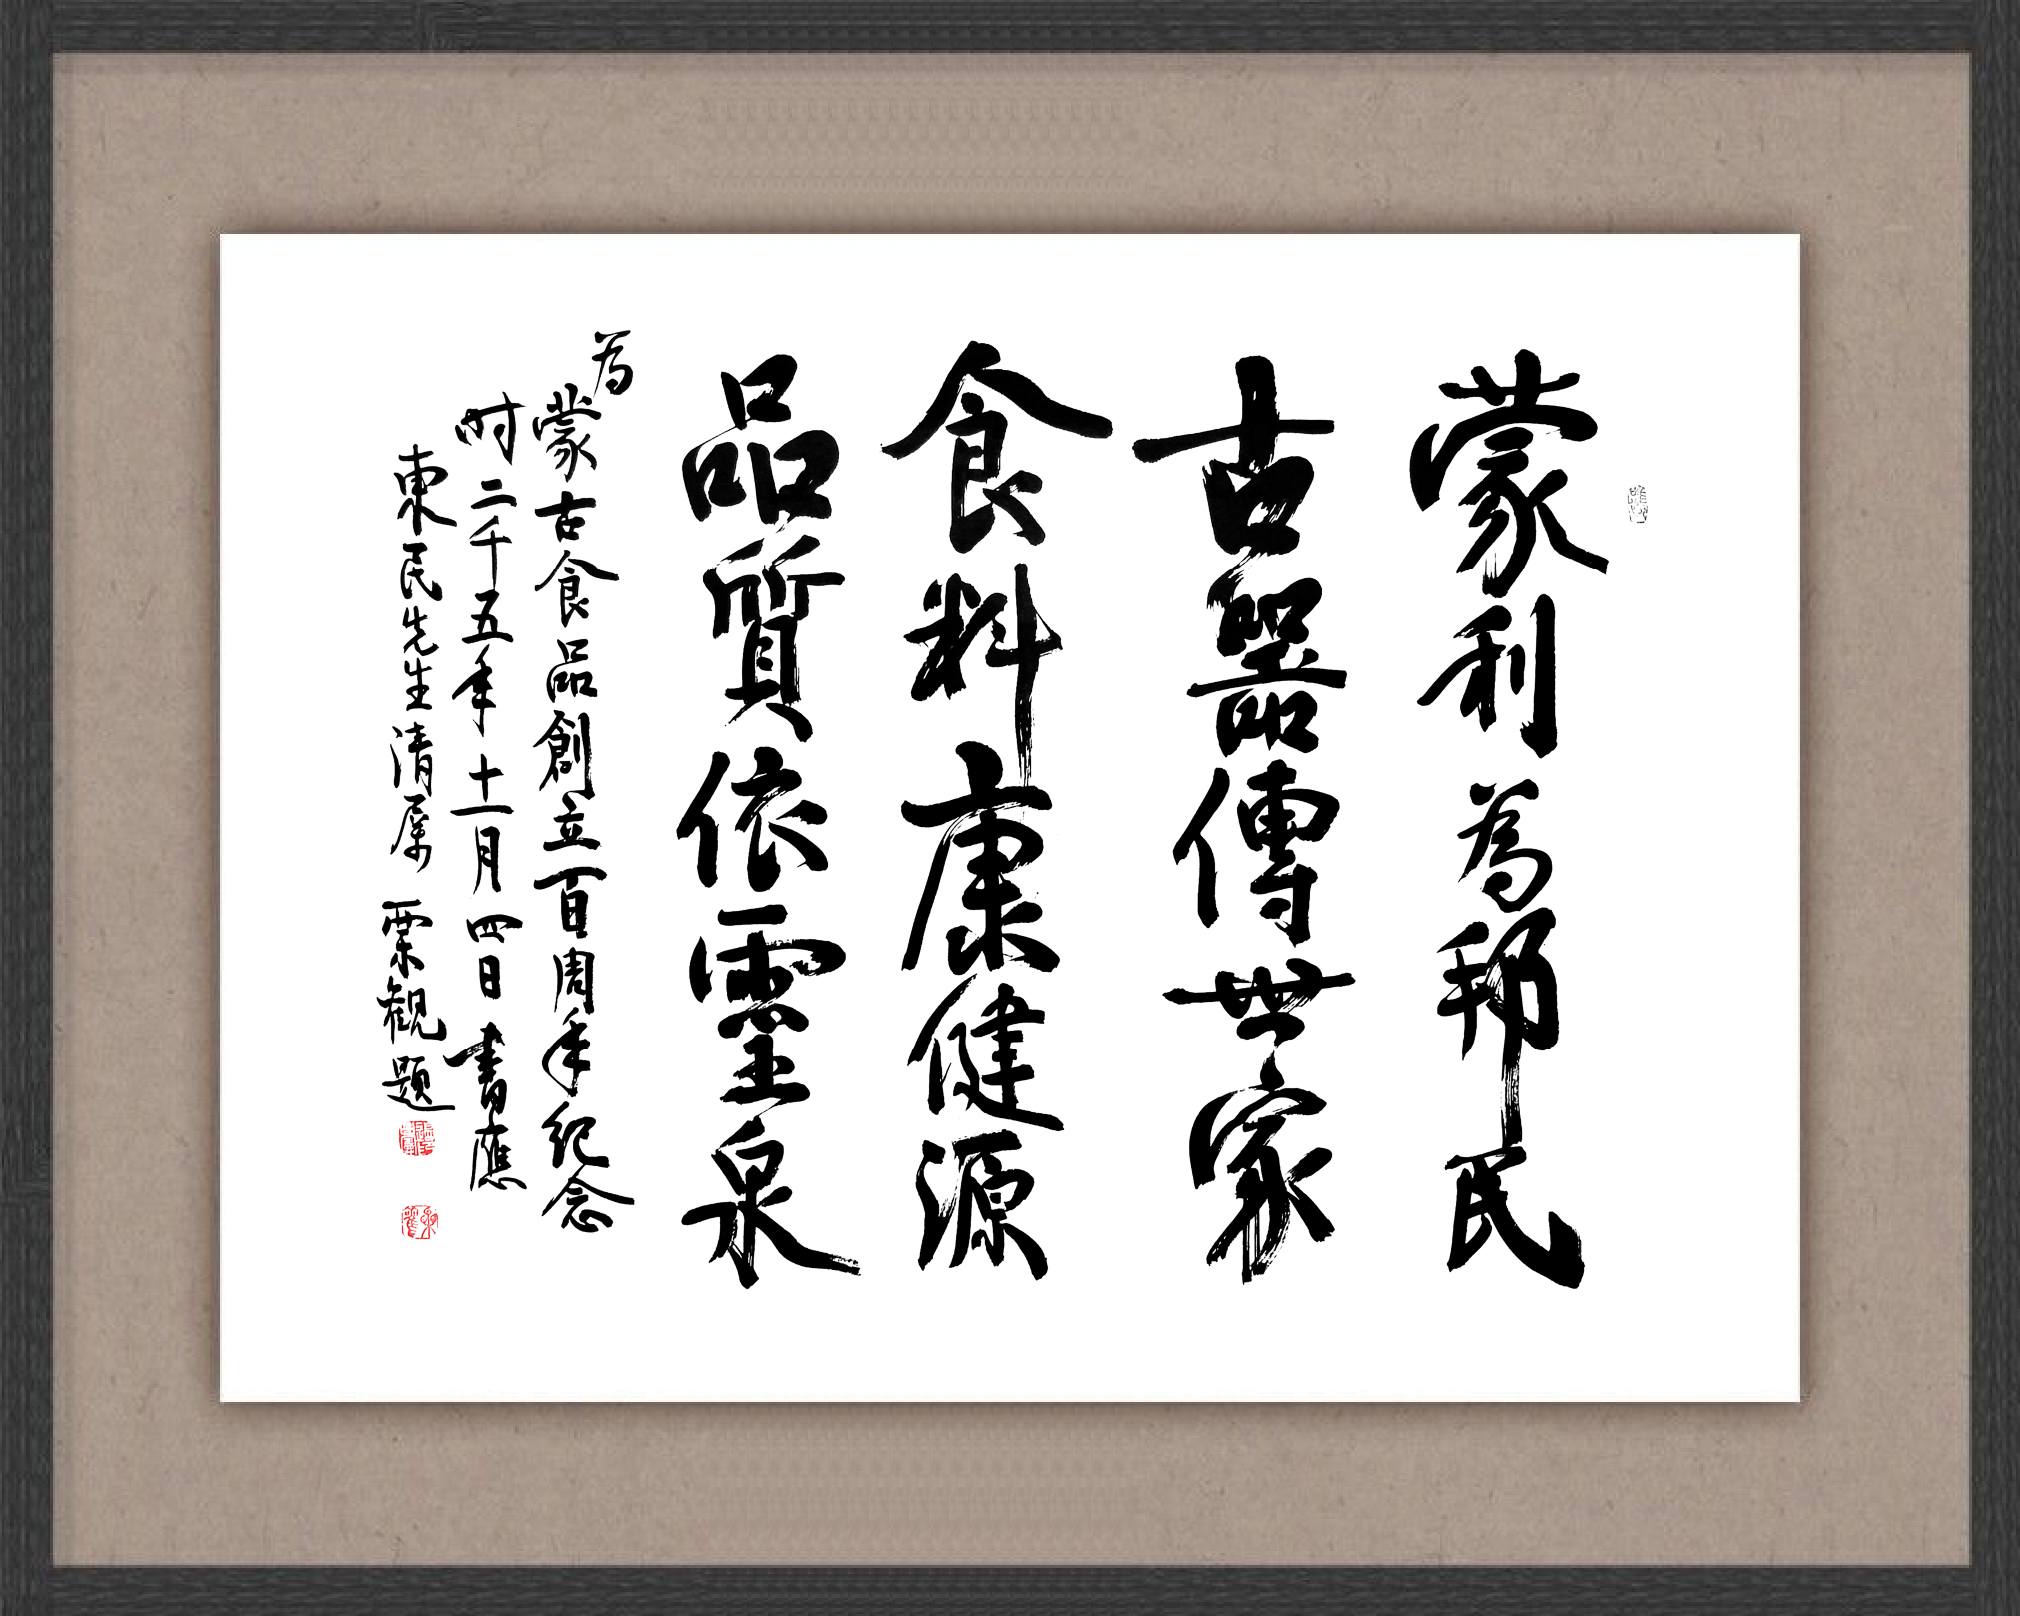 蒙利為邦民
古器傳世家
食料康健源
品質依靈泉
為
蒙古食品創立百周年紀念
时二千五年十一月四日書應
東民先生清属 栗観题